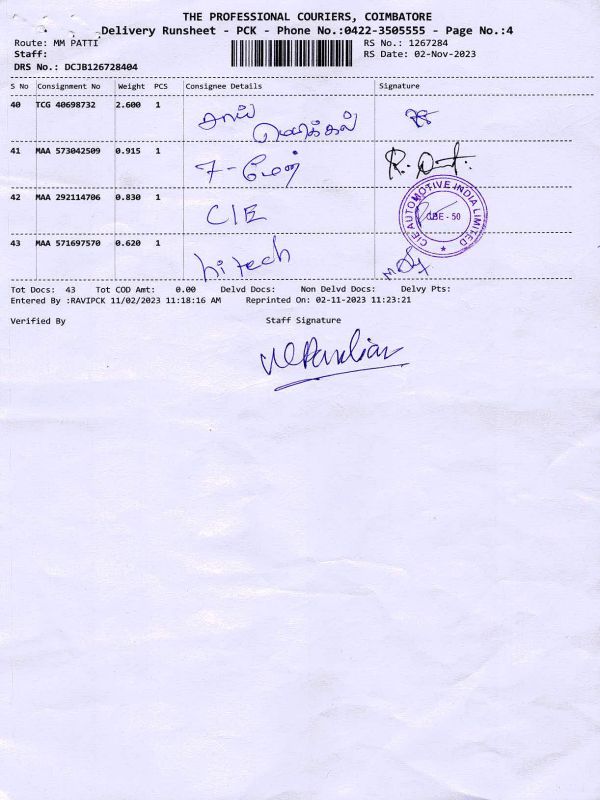 THE PROFESSIONAL COURIERS, COIMBATORE
Delivery Runsheet - PCK - Phone No.:0422-3505555 - Page No.:4
Route: MM PATTI
RS No.: 1267284
Staff:
RS Date: 02-Nov-2023
DRS No.: DCJB126728404
S No Consignment No Weight PCS Consignee Details Signature
40 TCG 40698732 2.600 1
சாய்
41 MAA 573042509 0.915 1
42 MAA 292114706 0.830 1 CIE
CIE AUTOMOTIVE INDIA LIMITED
CBE - 50
43 MAA 571697570 0.620 1 hitech
Tot Docs: 43 Tot COD Amt: 0.00 Delvd Docs: Non Delvd Docs: Delvy Pts:
Entered By :RAVIPCK 11/02/2023 11:18:16 AM Reprinted On: 02-11-2023 11:23:21
Verified By Staff Signature